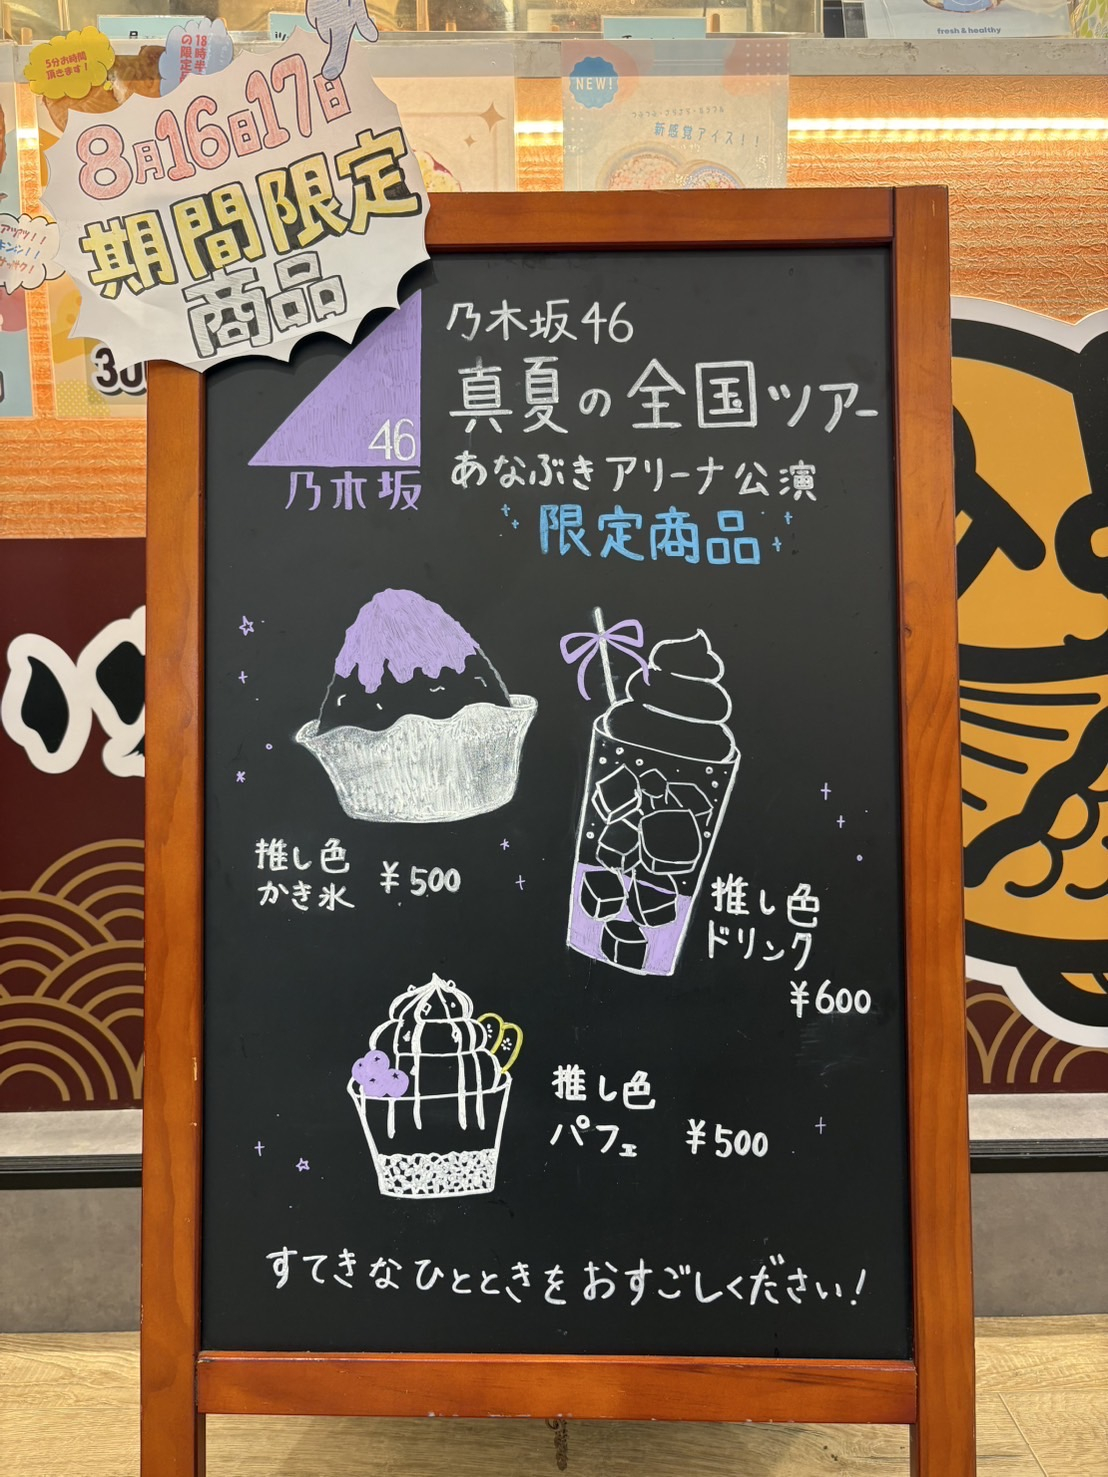 fresh & healthy
5分お時間
頂きます！
NEW!
新感覚アイス！！
8月16日17日
期間限定
商品
46
乃木坂
乃木坂46
真夏の全国ツアー
あなぶきアリーナ公演
限定商品
推し色
かき氷 ¥500
推し色
ドリンク
¥600
推し色
パフェ ¥500
すてきなひとときをおすごしください！